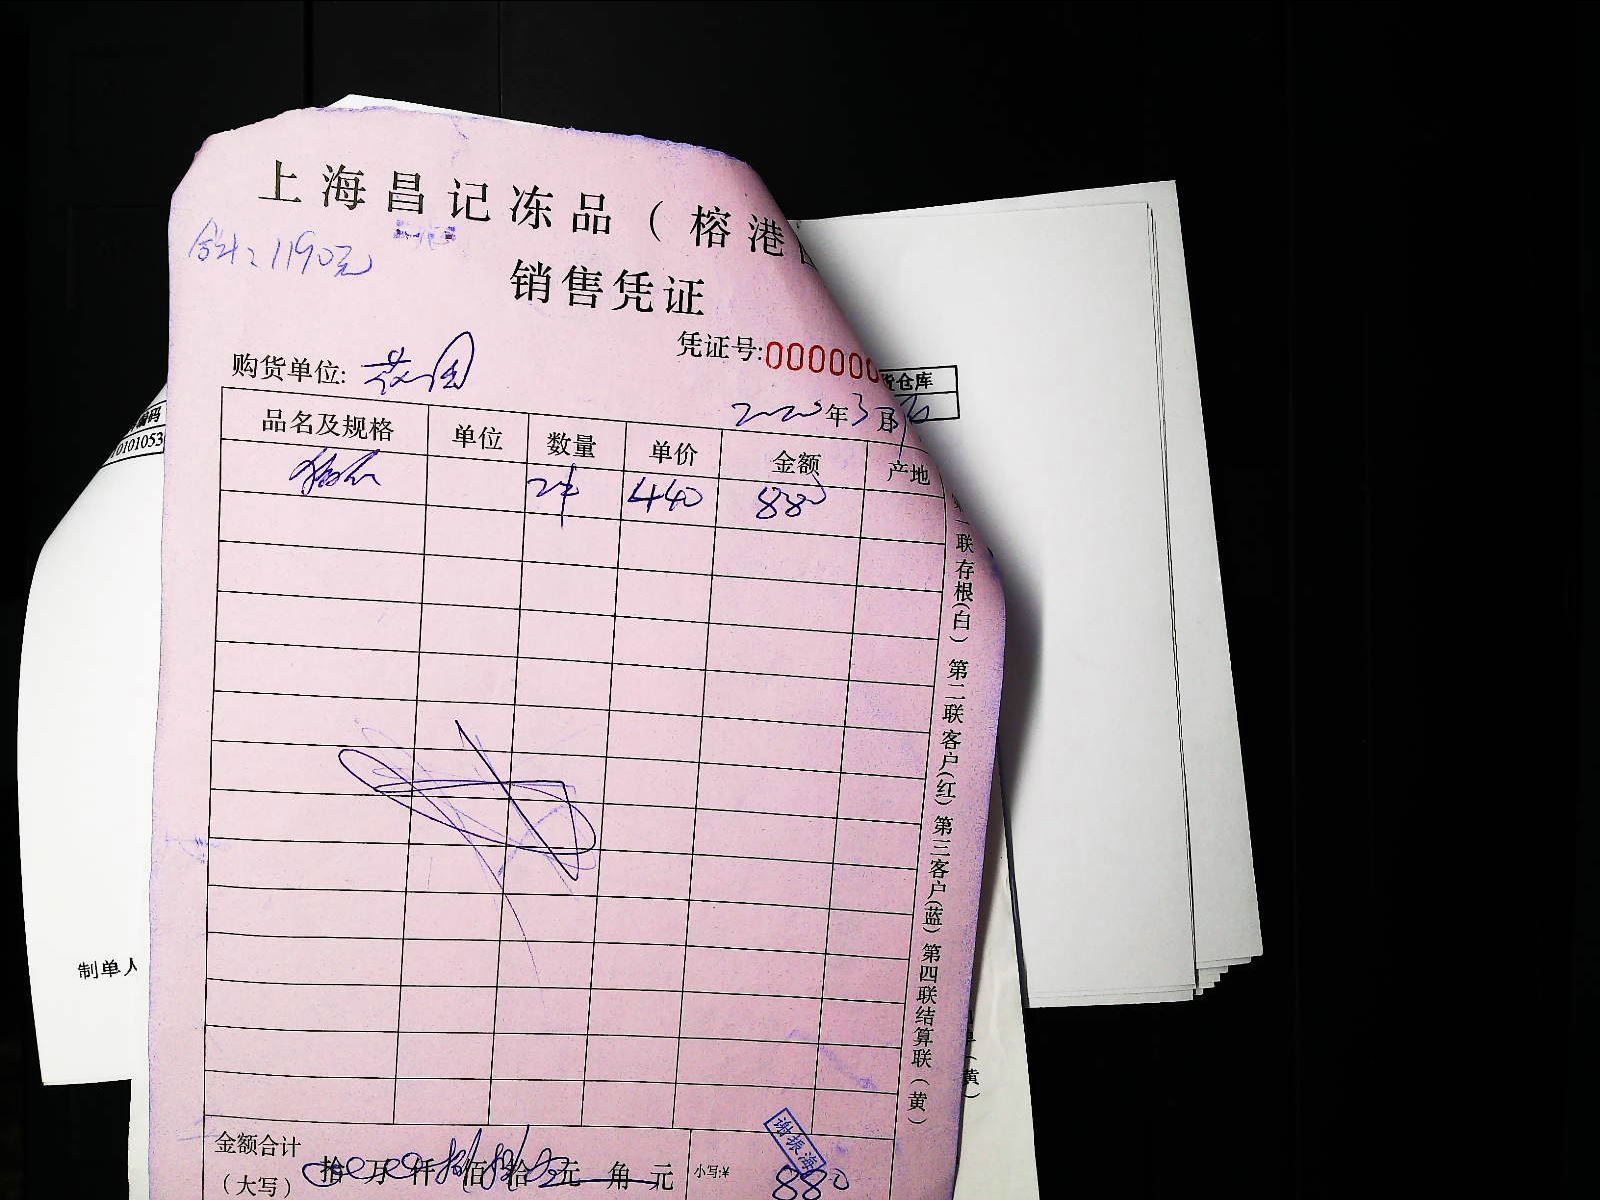 上海昌记冻品（榕港
合计：1190元
销售凭证
凭证号:000000
购货单位:
年3月
品名及规格 单位 数量 单价 金额 产地
2件 440 880
第一联存根(白) 第二联客户(红) 第三客户(蓝) 第四联结算联(黄)
金额合计
(大写) 拾 万 仟 佰 拾 元 角 元 小写:¥ 880
谢振海
货仓库
编码
0101053
制单人
黄)